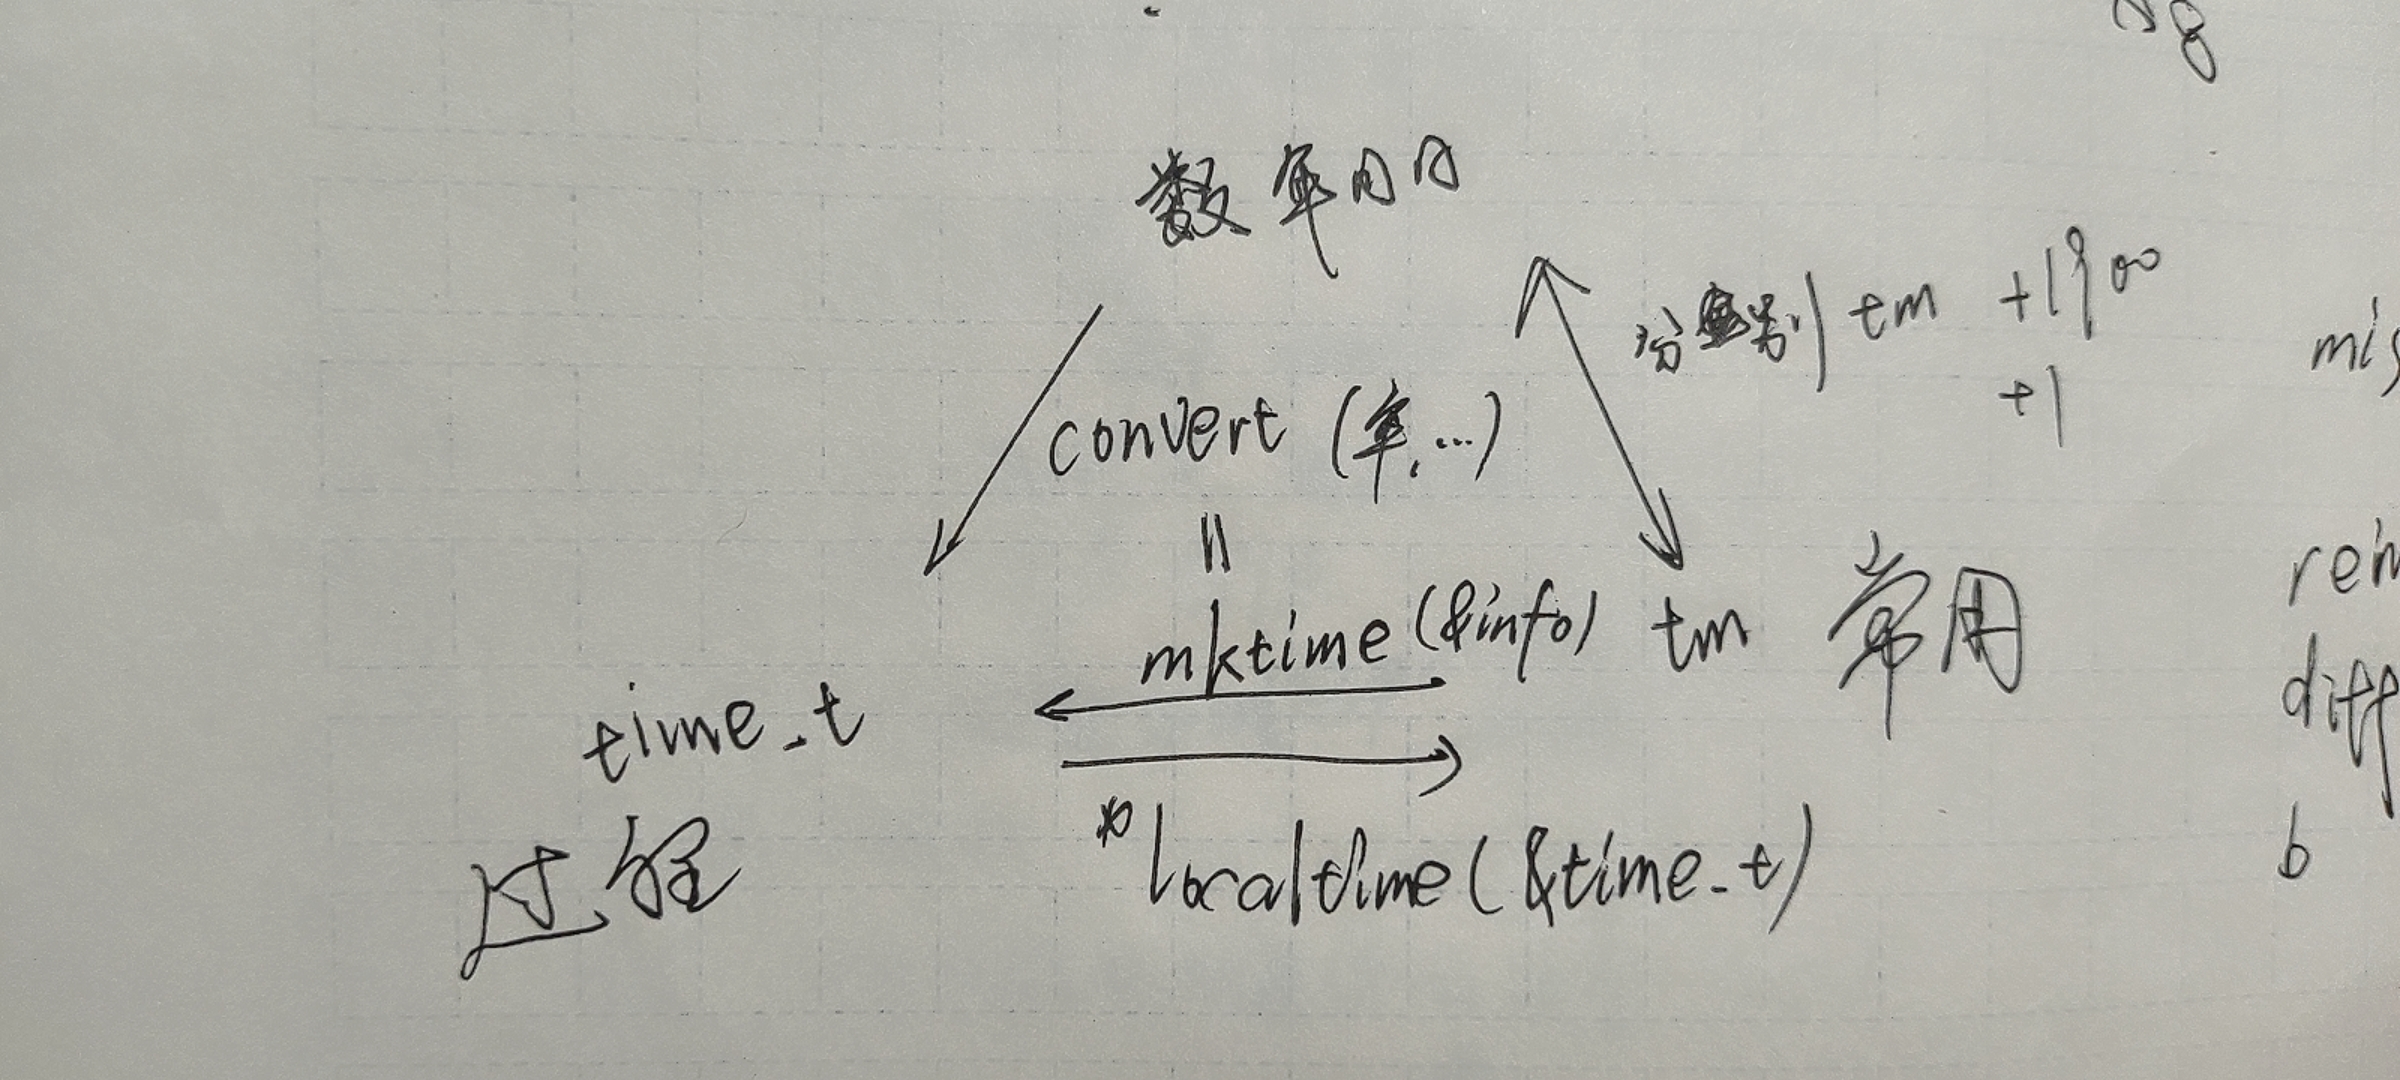 数 年月日
分别 tm +1900
+1
convert (年,...)
=
mktime (&info)
tm 常用
time_t
过程
*localtime(&time_t)
mis
diff
b